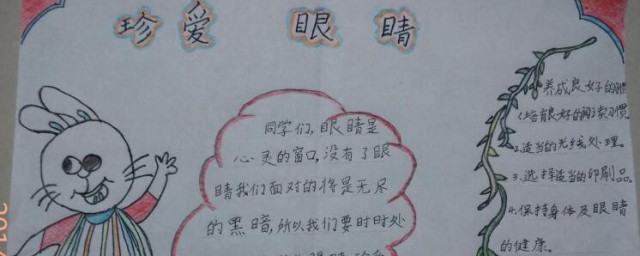 珍爱 眼睛
同学们,眼睛是
心灵的窗口,没有了眼
睛我们面对的将是无尽
的黑暗,所以我们要时时处
养成良好的
1.培良好的阅读习惯
2.适当的光线处理。
3.选择适当的印刷品。
4.保持身体及眼睛
的健康。